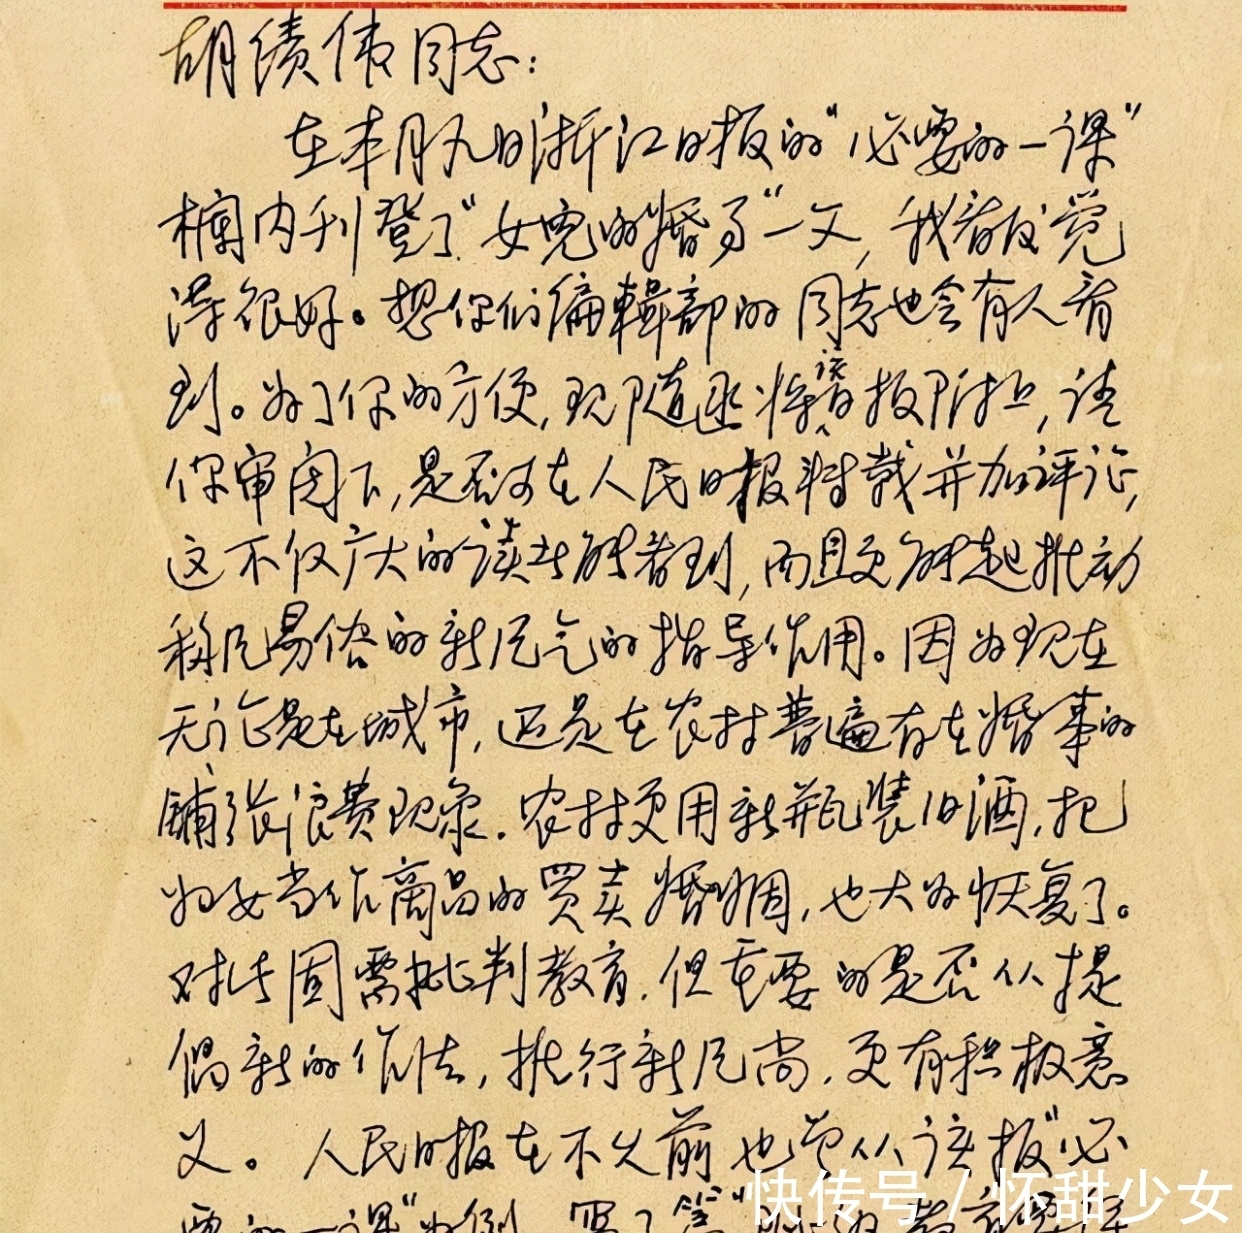 胡绩伟同志：
在本月九日浙江日报的“必要的一课”
栏内刊登了“女儿的婚事”一文，我看后觉
得很好。想你们编辑部的同志也会有人看
到。为了你的方便，现随函将该报附上，请
你审阅下，是否可在人民日报转载并加评论，
这不仅广大的读者能看到，而且更能起推动
移风易俗的新风气的指导作用。因为现在
无论是在城市，还是在农村普遍存在婚事的
铺张浪费现象。农村更用新瓶装旧酒，把
妇女当作商品的买卖婚姻，也大为恢复了。
对此固需批判教育．但重要的是否从提
倡新的作法，推行新风尚．更有积极意
义。人民日报在不久前也曾从该报“必
要的一课”为例，写了篇“
快传号 / 怀甜少女